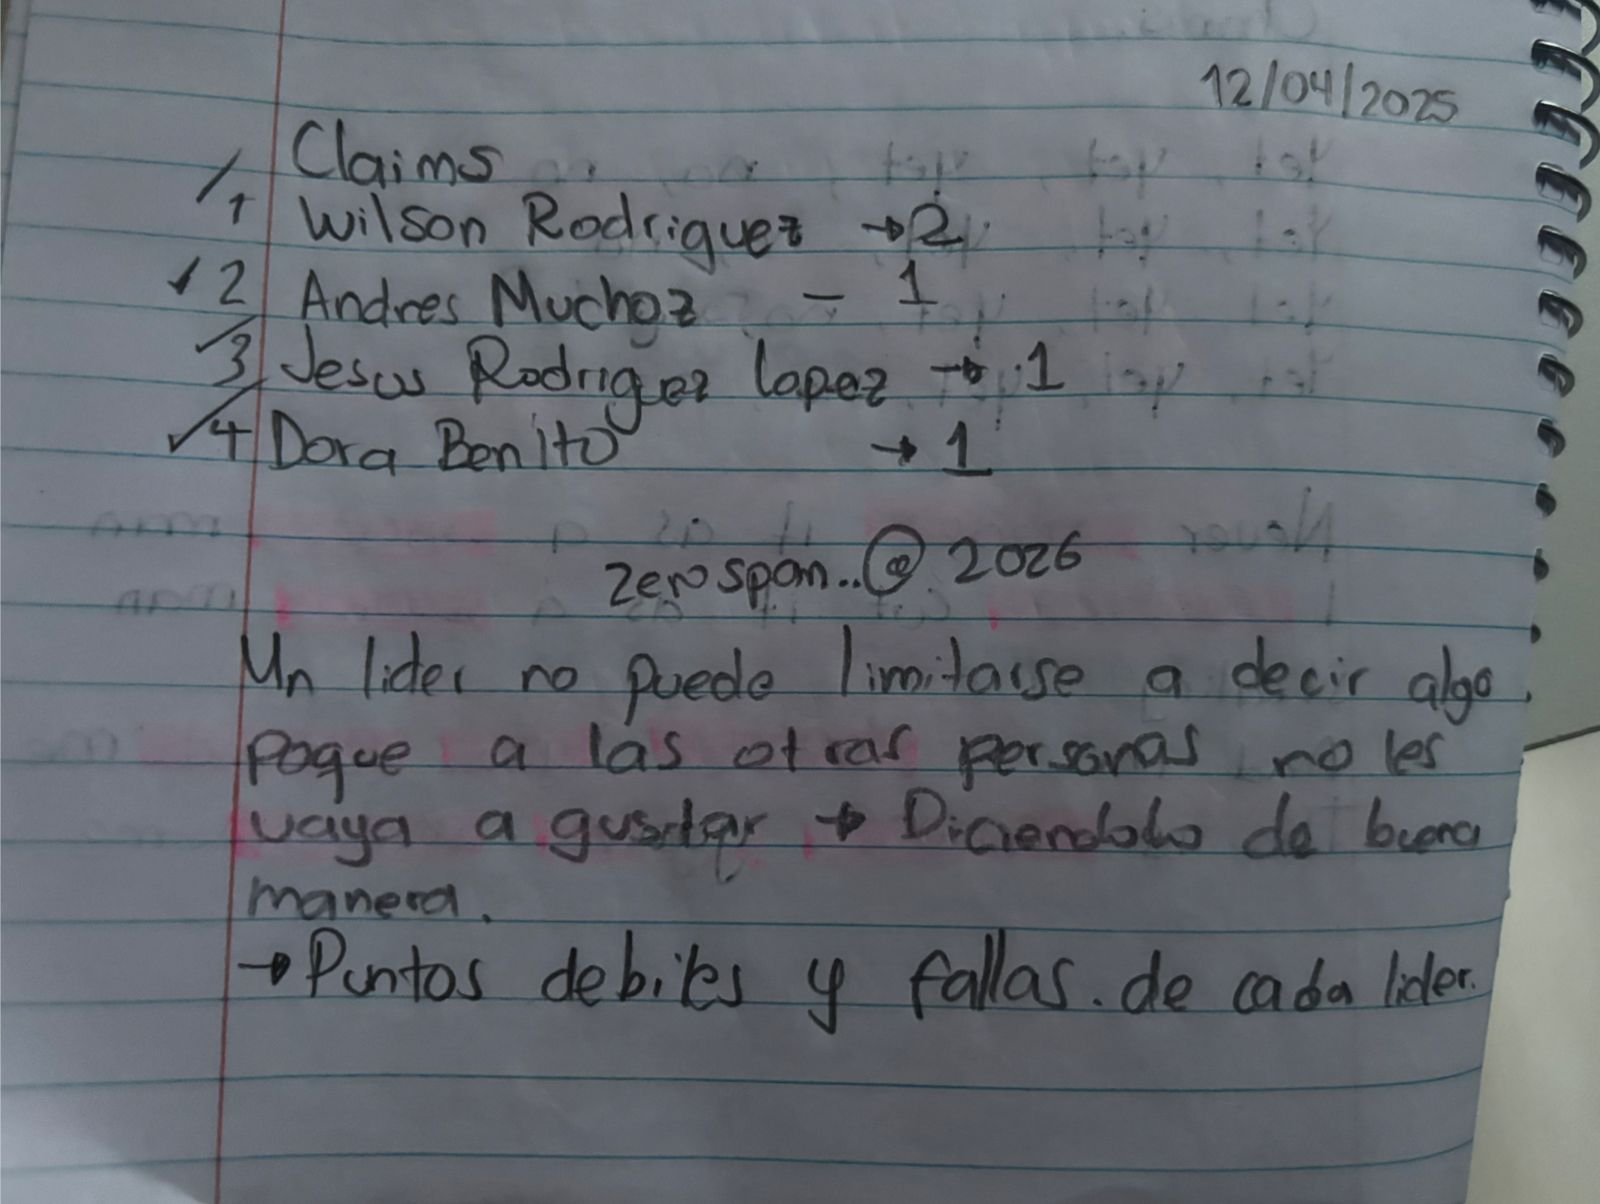 12/04/2025
Claims
1 Wilson Rodriguez → 2
✓ 2 Andres Muchoz - 1
✓ 3 Jesus Rodriguez lopez → 1
✓ 4 Dora Benito → 1
zero span..@ 2026
Un lider no puede limitarse a decir algo
poque a las otras personas no les
vaya a gustar → Diciendolo de buena
manera.
→ Puntos debiles y fallas. de cada lider.